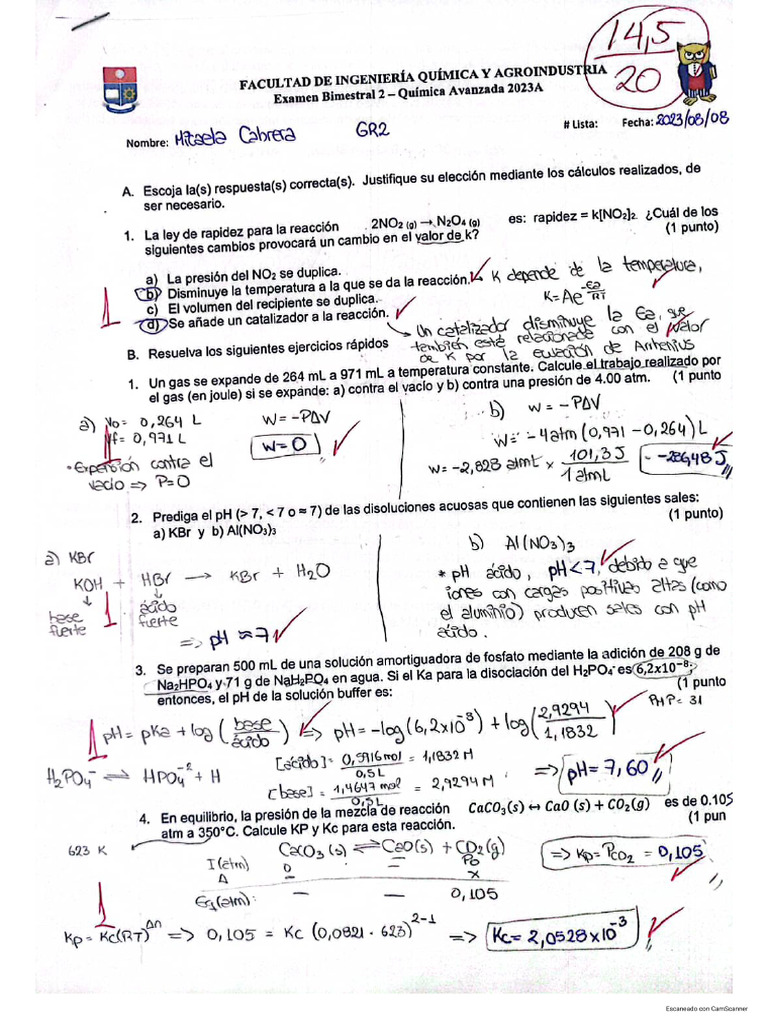 14,5
20
FACULTAD DE INGENIERÍA QUÍMICA Y AGROINDUSTRIA
Examen Bimestral 2 – Química Avanzada 2023A
Nombre: Mitaela Cabrera GR2 # Lista: Fecha: 2023/08/08
A. Escoja la(s) respuesta(s) correcta(s). Justifique su elección mediante los cálculos realizados, de
ser necesario.
1. La ley de rapidez para la reacción 2NO2 (g) → N2O4 (g) es: rapidez = k[NO2]2. ¿Cuál de los
siguientes cambios provocará un cambio en el valor de k? (1 punto)
a) La presión del NO2 se duplica.
b) Disminuye la temperatura a la que se da la reacción. ✓ K depende de la temperatura,
c) El volumen del recipiente se duplica. K=Ae^-Ea/RT
d) Se añade un catalizador a la reacción. ✓
1
Un catalizador disminuye la Ea, que
también está relacionada con el valor
de K por la ecuación de Arrhenius
B. Resuelva los siguientes ejercicios rápidos
1. Un gas se expande de 264 mL a 971 mL a temperatura constante. Calcule el trabajo realizado por
el gas (en joule) si se expande: a) contra el vacío y b) contra una presión de 4.00 atm. (1 punto
a) Vo = 0,264 L
Vf = 0,971 L
• Expansión contra el
vacío ⇒ P=0
W = -PΔV
W=0 ✓
b) W = -PΔV
W = -4atm (0,971 - 0,264) L
W= -2,828 atmL × 101,3 J / 1 atmL = -286,48 J
1
2. Prediga el pH (> 7, < 7 o ≈ 7) de las disoluciones acuosas que contienen las siguientes sales:
a) KBr y b) Al(NO3)3 (1 punto)
a) KBr
KOH + HBr → KBr + H2O
↓ ↓
base fuerte ácido fuerte
⇒ pH ≈ 7 ✓
1
b) Al(NO3)3
* pH ácido, pH<7, debido a que
iones con cargas positivas altas (como
el aluminio) producen sales con pH
ácido.
3. Se preparan 500 mL de una solución amortiguadora de fosfato mediante la adición de 208 g de
Na2HPO4 y 71 g de NaH2PO4 en agua. Si el Ka para la disociación del H2PO4- es 6,2x10-8;
entonces, el pH de la solución buffer es: (1 punto
1
pH = pKa + log (base/ácido) ⇒ pH = -log(6,2x10^-8) + log (2,9294/1,1832)
H2PO4- ⇌ HPO4^-2 + H
[ácido] = 0,5916 mol / 0,5L = 1,1832 M
[base] = 1,4647 mol / 0,5L = 2,9294 M
⇒ pH = 7,60
4. En equilibrio, la presión de la mezcla de reacción CaCO3(s) ↔ CaO (s) + CO2(g) es de 0.105
atm a 350°C. Calcule KP y Kc para esta reacción. (1 pun
623 K
CaCO3 (s) ⇌ CaO(s) + CO2(g)
I (atm) 0 – Po
Δ x
Eq (atm): – – 0,105
⇒ Kp = PCO2 = 0,105
1
Kp = Kc(RT)^Δn ⇒ 0,105 = Kc (0,0821 · 623)^2-1 ⇒ Kc = 2,0528x10^-3
Escaneado con CamScanner